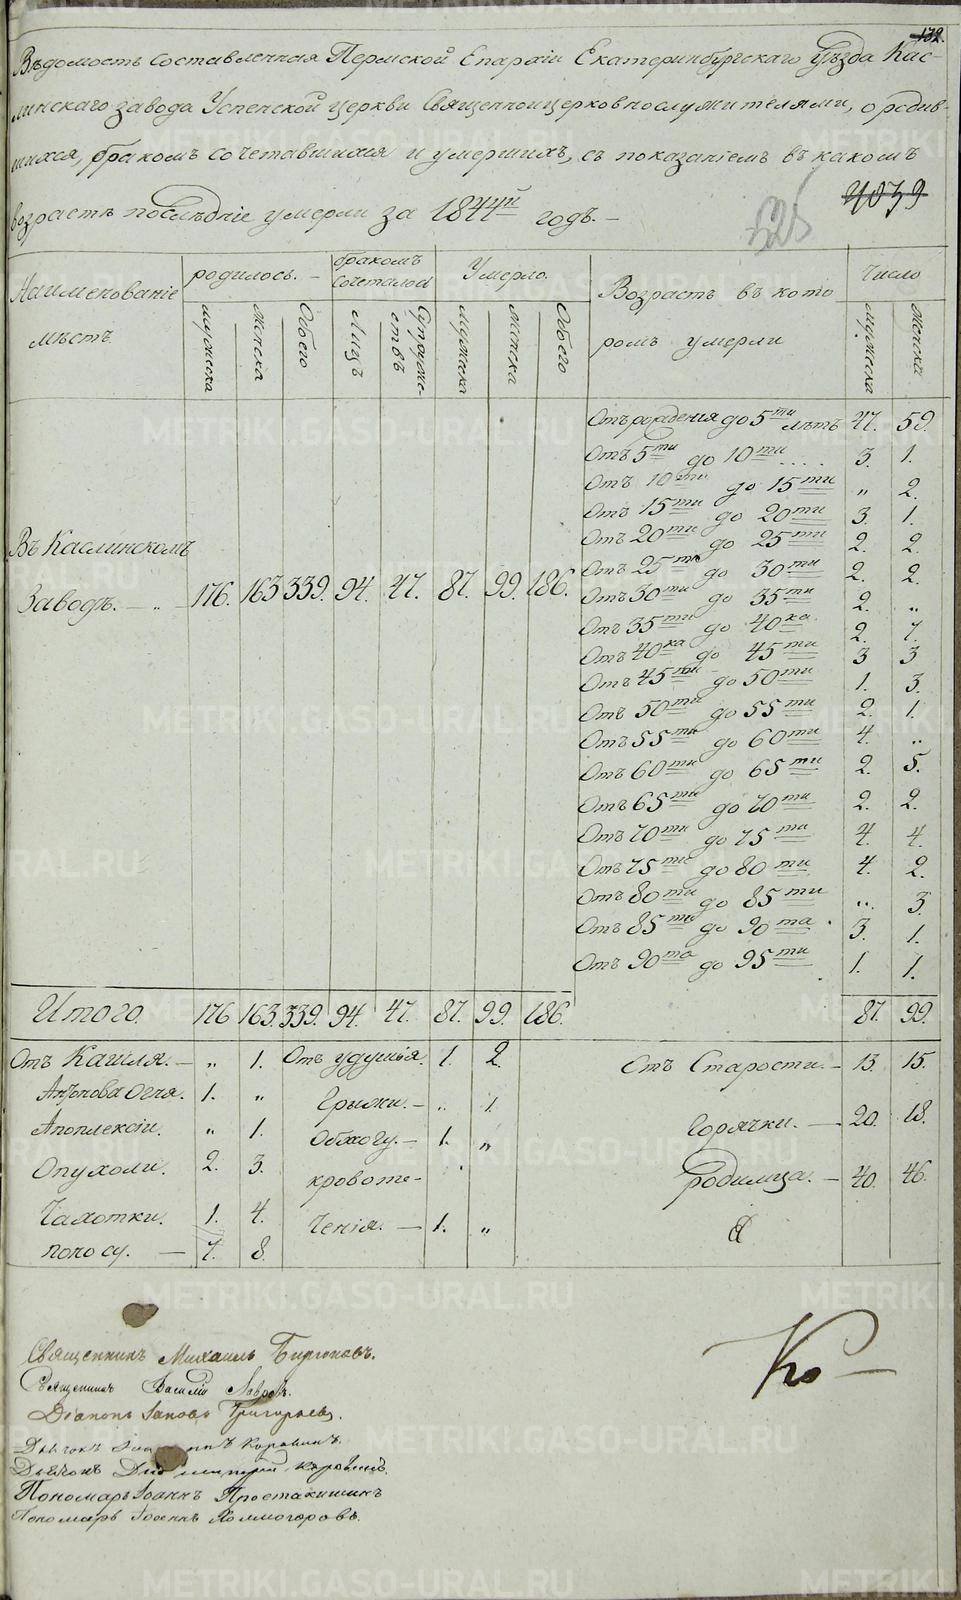 132.
Вѣдомость составленная Пермской Епархіи Екатеринбургскаго Уѣзда Кас-
линскаго завода Успенской церкви Священноицерковнослужителями, о родив-
шихся, бракомъ сочетавшихся и умершихъ, съ показаніемъ въ какомъ
возрастѣ послѣдніе умерли за 1844й годъ. –
4039
525
Наименованіе мѣстъ | родилось. – | бракомъ сочеталось | Умерло. | Возрастъ въ кото ромъ умерли | Число
мужеска | женска | Обоего | Лицъ | Супруже-ствъ | мужеска | женска | Обоего | мужеска | женска
Отъ рожденія до 5ти лѣтъ 47. 59.
Отъ 5ти до 10ти .... 3. 1.
Отъ 10ти до 15ти „ 2.
Отъ 15ти до 20ти 3. 1.
Отъ 20ти до 25ти 2. 2.
Отъ 25ти до 30ти 2. 2.
Въ Каслинскомъ
Заводѣ. – „ – 176. 163 339. 94. 47. 87. 99. 186.
Отъ 30ти до 35ти 2. „
Отъ 35ти до 40ка. 2. 7.
Отъ 40ка до 45ти 3 3
Отъ 45ти до 50ти 1. 3.
Отъ 50ти до 55ти 2. 1.
Отъ 55ти до 60ти 4. „
Отъ 60ти до 65ти 2. 5.
Отъ 65ти до 70ти 2. 2.
Отъ 70ти до 75ти 4. 4.
Отъ 75ти до 80ти 4. 2.
Отъ 80ти до 85ти „. 3.
Отъ 85ти до 90та 3. 1.
Отъ 90та до 95ти 1. 1.
Итого. 176 163. 339. 94. 47. 87. 99. 186. 87. 99.
Отъ Кашля. – „ 1. Отъ удушья. 1. 2. Отъ Старости. – 13. 15.
Антонова Огня. 1. „ Грыжи. – „ 1.
Апоплексіи. „ 1. Обжогу. – 1. „ Горячки. – 20. 18.
Опухоли. 2. 3. кровоте- родимца. – 40. 46.
Чахотки. 1. 4. ченія. – 1. „
поносу. – 7. 8.
Ко
Священникъ Михаилъ
Священникъ Василій Лавровъ.
Діаконъ Іаковъ Григорьевъ.
Дьячокъ Коровинъ.
Дьячокъ Димитрій Коровинъ.
Пономарь Іоаннъ Простакишинъ
Пономарь Іоаннъ Холмогоровъ.
METRIKI.GASO-URAL.RU